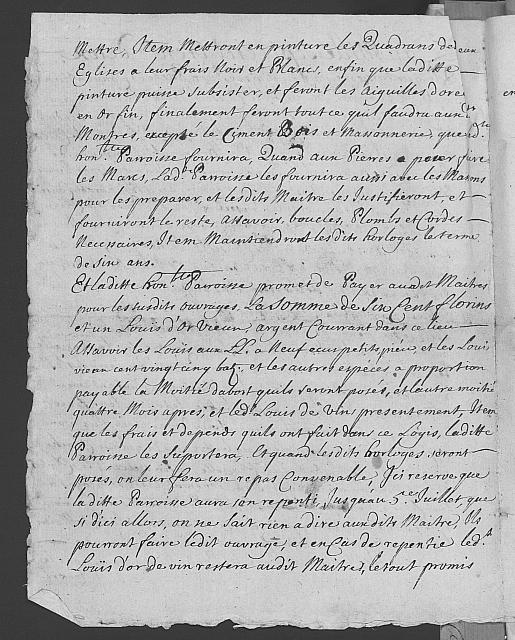 Mettre, Item Mettront en pinture les Quadrans de ces
Eglises a leur frais Noir et Blancs, enfin que laditte
pinture puisse subsister, et feront les aiguilles doreé
en Or fin, finalement feront tout ce qu'il faudra auxd.
Montres, excepté le Ciment Bois et Massonnerie, que
hon.ble Parroisse fournira, Quand aux Pierres a peser faire
les Marcs, Lad.te Parroisse les fournira aussi avec les Massons
pour les preparer, et lesdits Maitre les Justifieront, et
fourniront le reste, Assavoir, boucles, Plombs et Cordes
Necessaires, Item Maintiendront lesdits horloges le terme
de six ans.
Et laditte hon.ble Parroisse promet de Payer audit Maitres
pour les susdits ouvrages, La Somme de Six Cent florins
et un Louis d'Or Vieux, argent Courrant dans ce lieu
Assavoir les Louis aux LL. a Neuf ecus petits, piéce, et les Louis
vieux cent vingt cinq batz. et les autres espéces a proportion
payable la Moitié dabort quils seront posés, et lautre moitié
quattre Mois apres, et led.t Louis de vin presentement, Item
que les frais et depends quils ont fait dans ce Logis, laditte
Parroisse les Suportera, Et quand lesdits horloges seront
poses, on leur fera un repas Convenable, Ici reserve que
laditte Parroisse aura son repenti, Jusquau 5.e Juillet, que
si dici allors, on ne fait rien a dire auxdits Maitre, Ils
pourront faire ledit ouvrage, et en Cas de repentie led.t
Louis d'or de vin restera audit Maitre, le tout promis